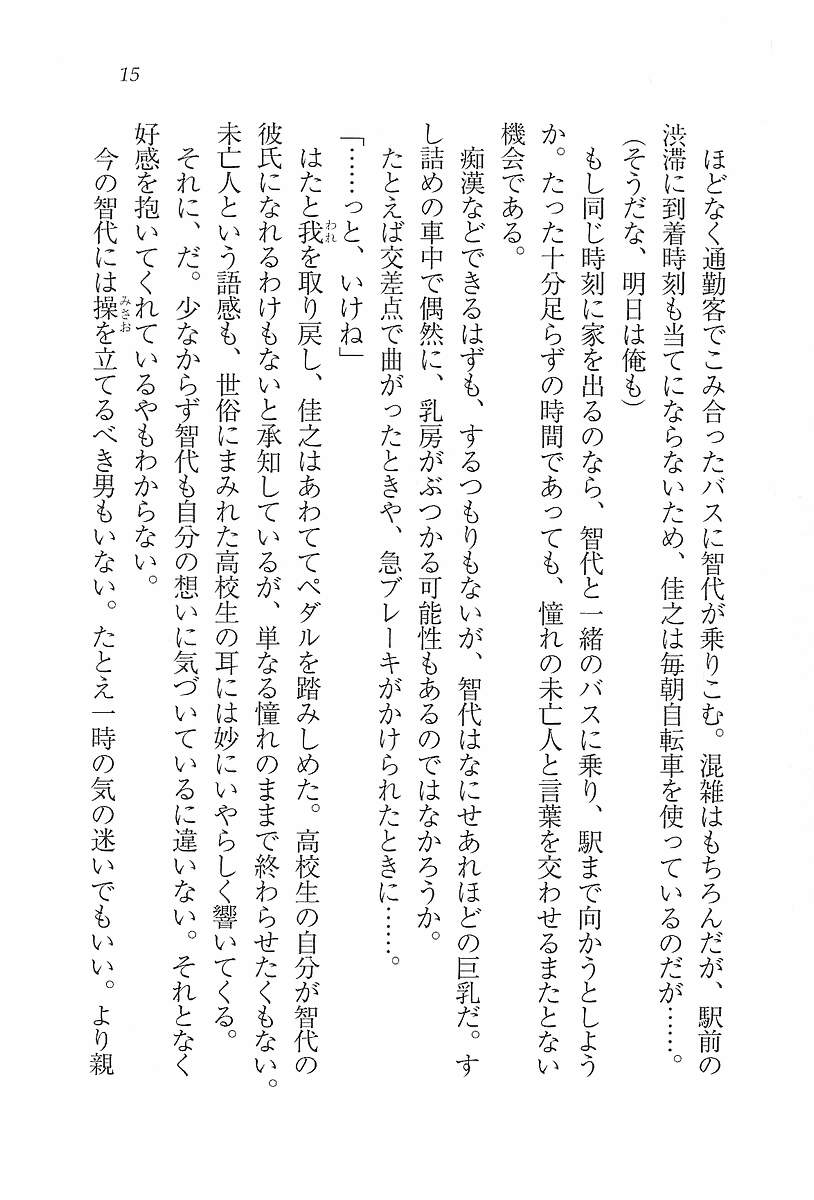 15
ほどなく通勤客でこみ合ったバスに智代が乗りこむ。混雑はもちろんだが、駅前の
渋滞に到着時刻も当てにならないため、佳之は毎朝自転車を使っているのだが……。
(そうだな、明日は俺も)
もし同じ時刻に家を出るのなら、智代と一緒のバスに乗り、駅まで向かうとしよう
か。たった十分足らずの時間であっても、憧れの未亡人と言葉を交わせるまたとない
機会である。
痴漢などできるはずも、するつもりもないが、智代はなにせあれほどの巨乳だ。す
し詰めの車中で偶然に、乳房がぶつかる可能性もあるのではなかろうか。
たとえば交差点で曲がったときや、急ブレーキがかけられたときに……。
「……っと、いけね」
われ
はたと我を取り戻し、佳之はあわててペダルを踏みしめた。高校生の自分が智代の
彼氏になれるわけもないと承知しているが、単なる憧れのままで終わらせたくもない。
未亡人という語感も、世俗にまみれた高校生の耳には妙にいやらしく響いてくる。
それに、だ。少なからず智代も自分の想いに気づいているに違いない。それとなく
好感を抱いてくれているやもわからない。
みさお
今の智代には操を立てるべき男もいない。たとえ一時の気の迷いでもいい。より親